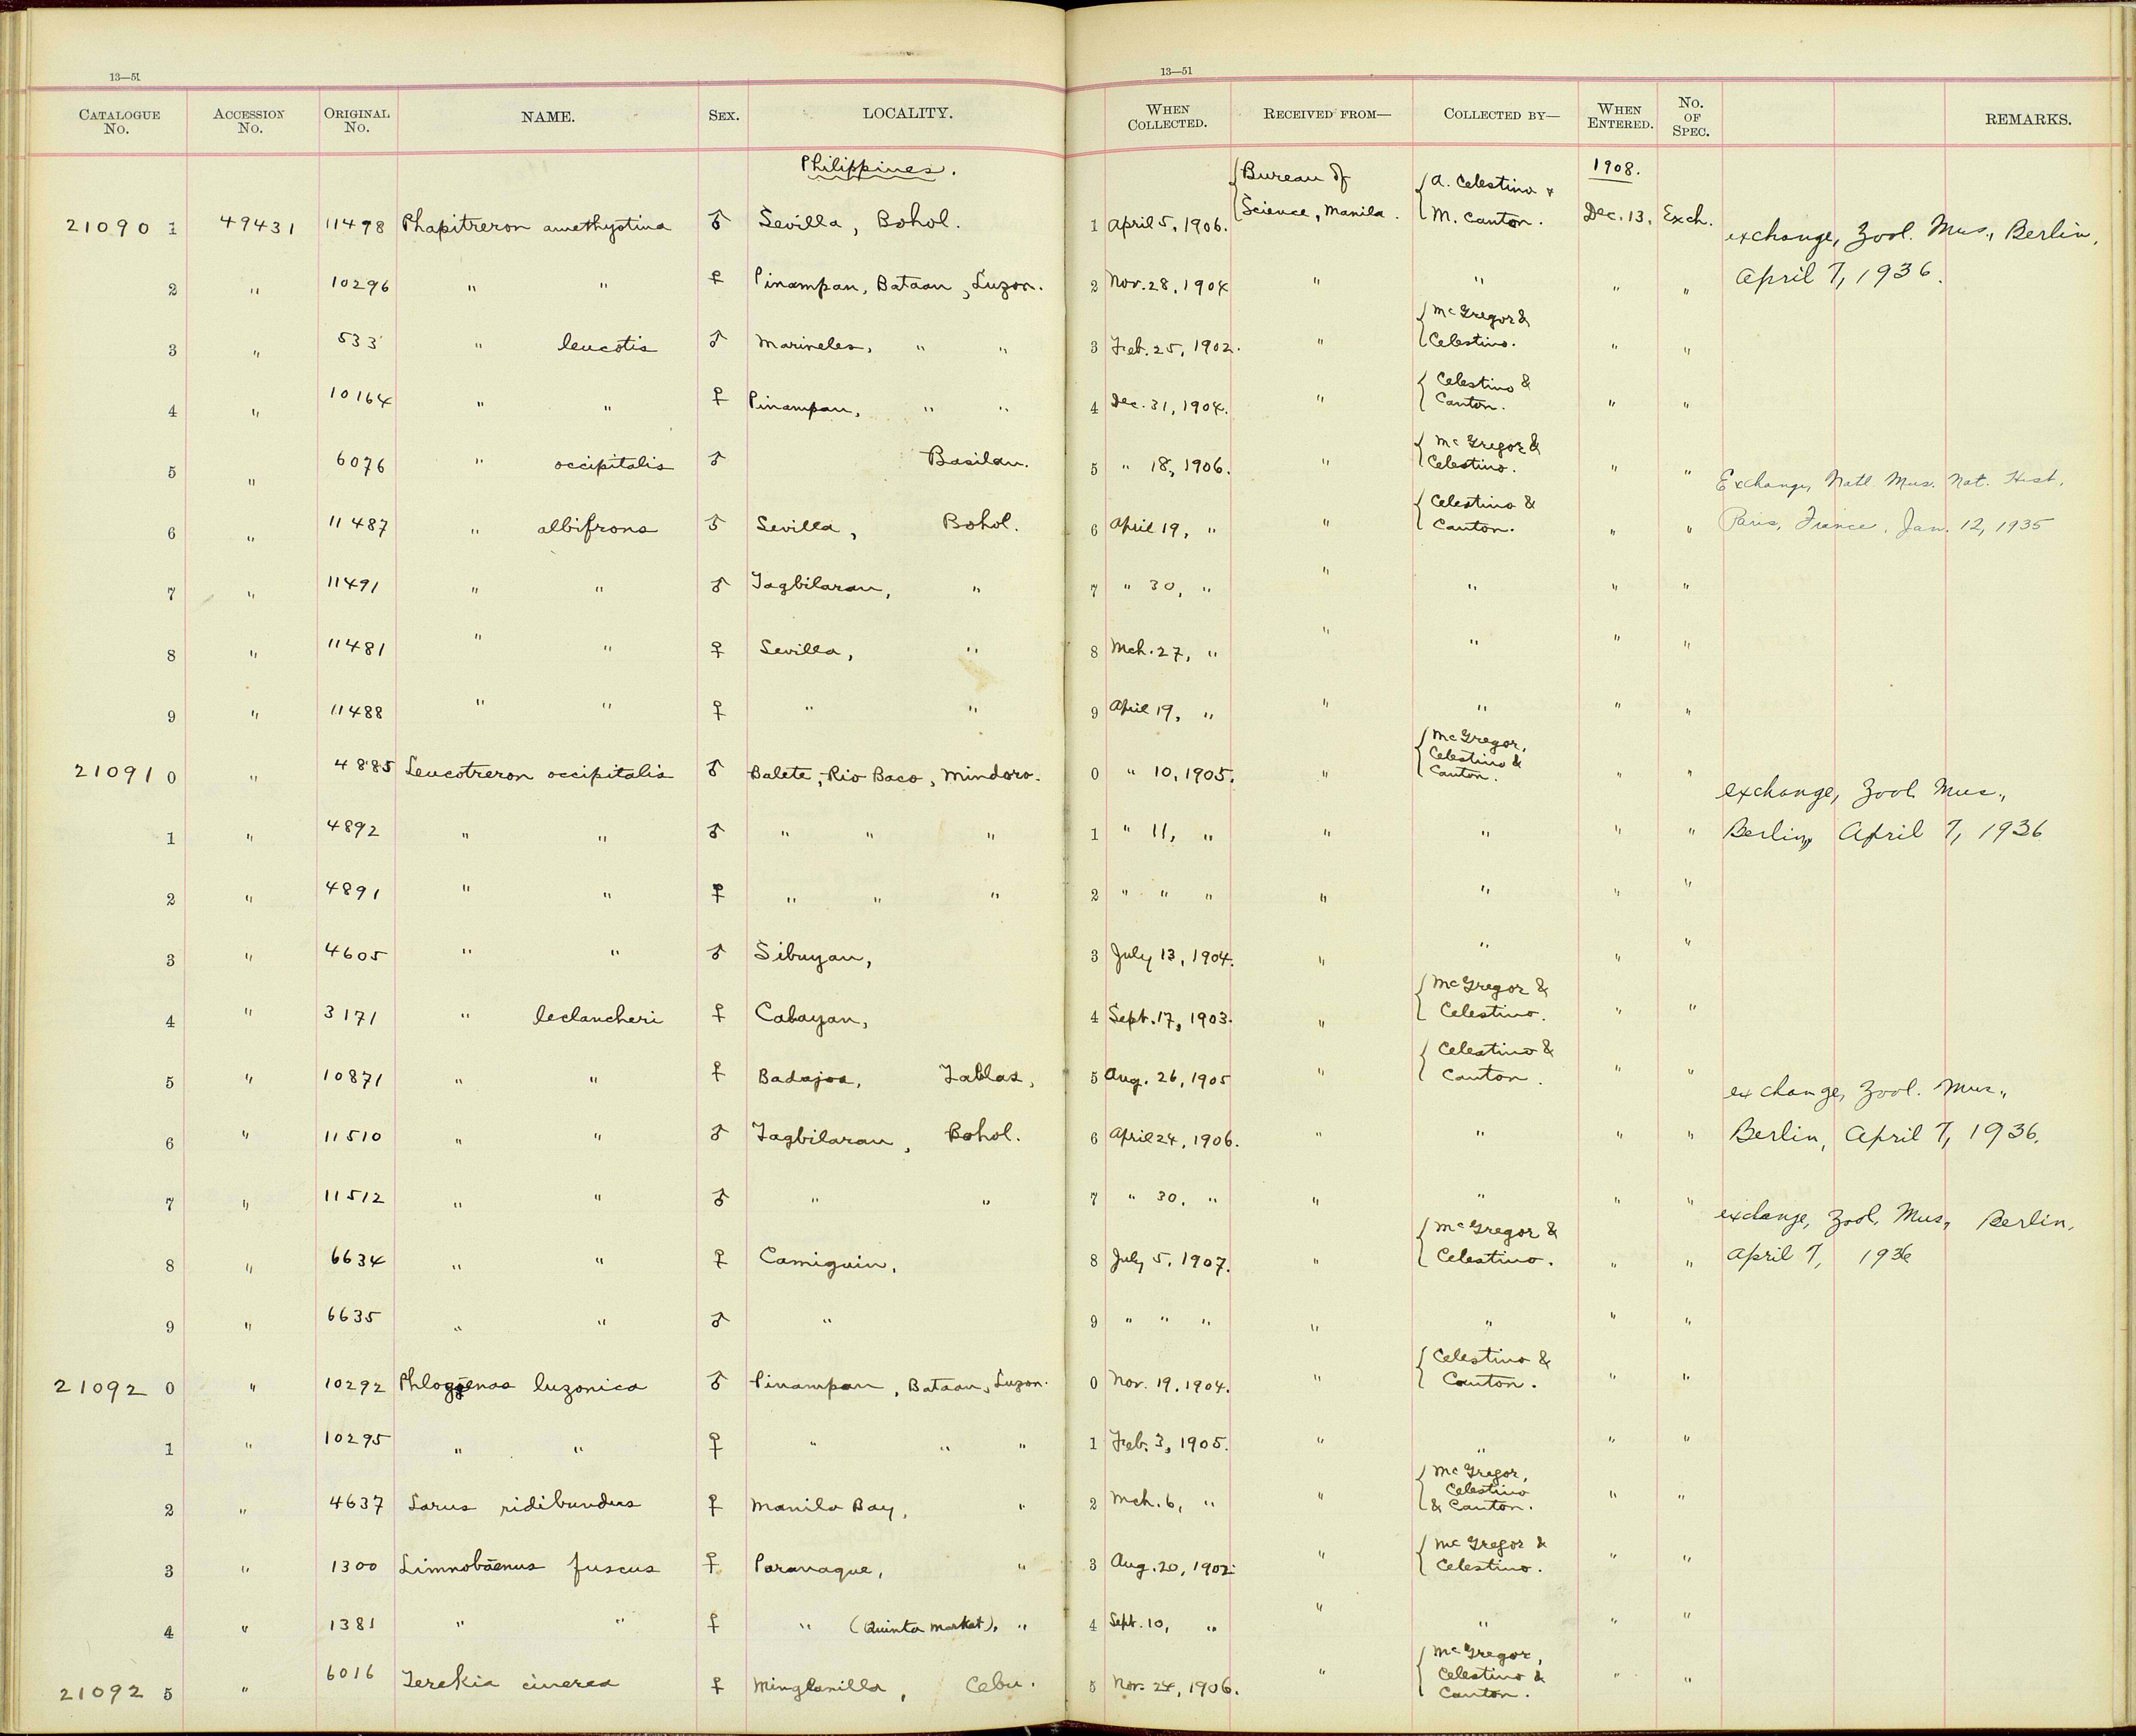 13—51
13—51
CATALOGUE No. ACCESSION No. ORIGINAL No. NAME. SEX. LOCALITY. WHEN COLLECTED. RECEIVED FROM— COLLECTED BY— WHEN ENTERED. No. OF SPEC. REMARKS.
Philippines. { Bureau of { A. Celestino & 1908.
21090 1 49431 11498 Phapitreron amethystina ♂ Sevilla, Bohol. 1 April 5, 1906. Science, Manila. M. Canton. Dec. 13, Exch. exchange, Zool. Mus., Berlin,
2 " 10296 " " ♀ Pinampan, Bataan, Luzon. 2 Nov. 28, 1904 " " " " April 7, 1936.
3 " 533 " leucotis ♂ Mariveles, " " 3 Feb. 25, 1902. " { McGregor & Celestino. " "
4 " 10164 " " ♀ Pinampan, " " 4 Dec. 31, 1904. " { Celestino & Canton. " "
5 " 6076 " occipitalis ♂ Basilan. 5 " 18, 1906. " { McGregor & Celestino. " " Exchange, Natl. Mus. Nat. Hist.
6 " 11487 " albifrons ♂ Sevilla, Bohol. 6 April 19, " " { Celestino & Canton. " " Paris, France. Jan. 12, 1935
7 " 11491 " " ♂ Tagbilaran, " 7 " 30, " " " " "
8 " 11481 " " ♀ Sevilla, " 8 Mch. 27, " " " " "
9 " 11488 " " ♀ " " 9 April 19, " " " " "
21091 0 " 4885 Leucotreron occipitalis ♂ Balete, Rio Baco, Mindoro. 0 " 10, 1905. " { McGregor, Celestino & Canton. " " exchange, Zool. Mus.,
1 " 4892 " " ♂ " " " 1 " 11, " " " " " Berlin, April 7, 1936
2 " 4891 " " ♀ " " " 2 " " " " " " "
3 " 4605 " " ♂ Sibuyan, 3 July 13, 1904. " " " "
4 " 3171 " leclancheri ♀ Calayan, 4 Sept. 17, 1903. " { McGregor & Celestino. " "
5 " 10871 " " ♀ Badajoa, Tablas, 5 Aug. 26, 1905 " { Celestino & Canton. " " exchange, Zool. Mus.,
6 " 11510 " " ♂ Tagbilaran, Bohol. 6 April 24, 1906. " " " " Berlin, April 7, 1936.
7 " 11512 " " ♂ " " 7 " 30, " " " " " exchange, Zool. Mus., Berlin,
8 " 6634 " " ♀ Camiguin, 8 July 5, 1907. " { McGregor & Celestino. " " April 7, 1936
9 " 6635 " " ♂ " 9 " " " " " " "
21092 0 " 10292 Phlogoenas luzonica ♂ Pinampan, Bataan, Luzon. 0 Nov. 19, 1904. " { Celestino & Canton. " "
1 " 10295 " " ♀ " " " 1 Feb. 3, 1905. " " " "
2 " 4637 Larus ridibundus ♀ Manila Bay, " 2 Mch. 6, " " { McGregor, Celestino & Canton. " "
3 " 1300 Limnobaenus fuscus ♀ Paranaque, " 3 Aug. 20, 1902. " { McGregor & Celestino. " "
4 " 1381 " " ♀ " (Quinta Market), " 4 Sept. 10, " " " " "
21092 5 " 6016 Terekia cinerea ♀ Minglanilla, Cebu. 5 Nov. 24, 1906. " { McGregor, Celestino & Canton. " "